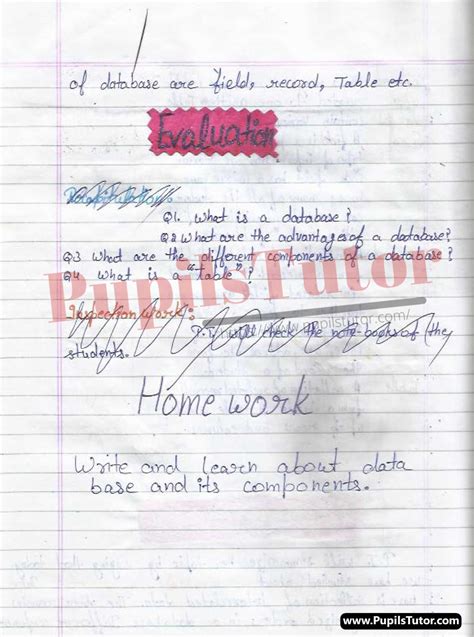 of database are field, record, Table etc.
Evaluation
Q1. What is a database?
Q2 What are the advantages of a database?
Q3 What are the different components of a database?
Q4 What is a "table"?
PupilsTutor
Inspection work:
P.T. will check the note-books of the
https://www.pupilstutor.com/
students.
Home work
Write and learn about data
base and its components.
www.PupilsTutor.com